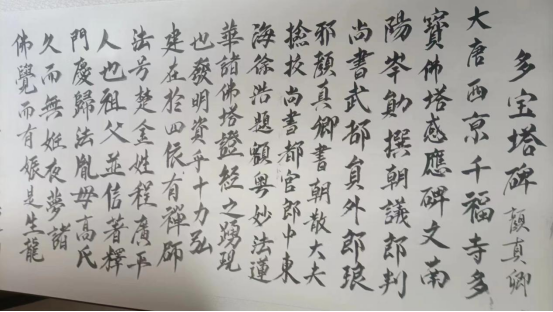 多宝塔碑 顏真卿
大唐西京千福寺多
寶佛塔感應碑文南
陽岑勛撰朝議郎判
尚書武部員外郎琅
邪顏真卿書朝散大夫
撿挍尚書都官郎中東
海徐浩題額粤妙法蓮
華諸佛塔證經之踴現
也發明資乎十力弘
建在於四依有禅師
法号楚金姓程廣平
人也祖父並信著釋
門慶歸法胤母高氏
久而無姙夜夢諸
佛覺而有娠是生龍